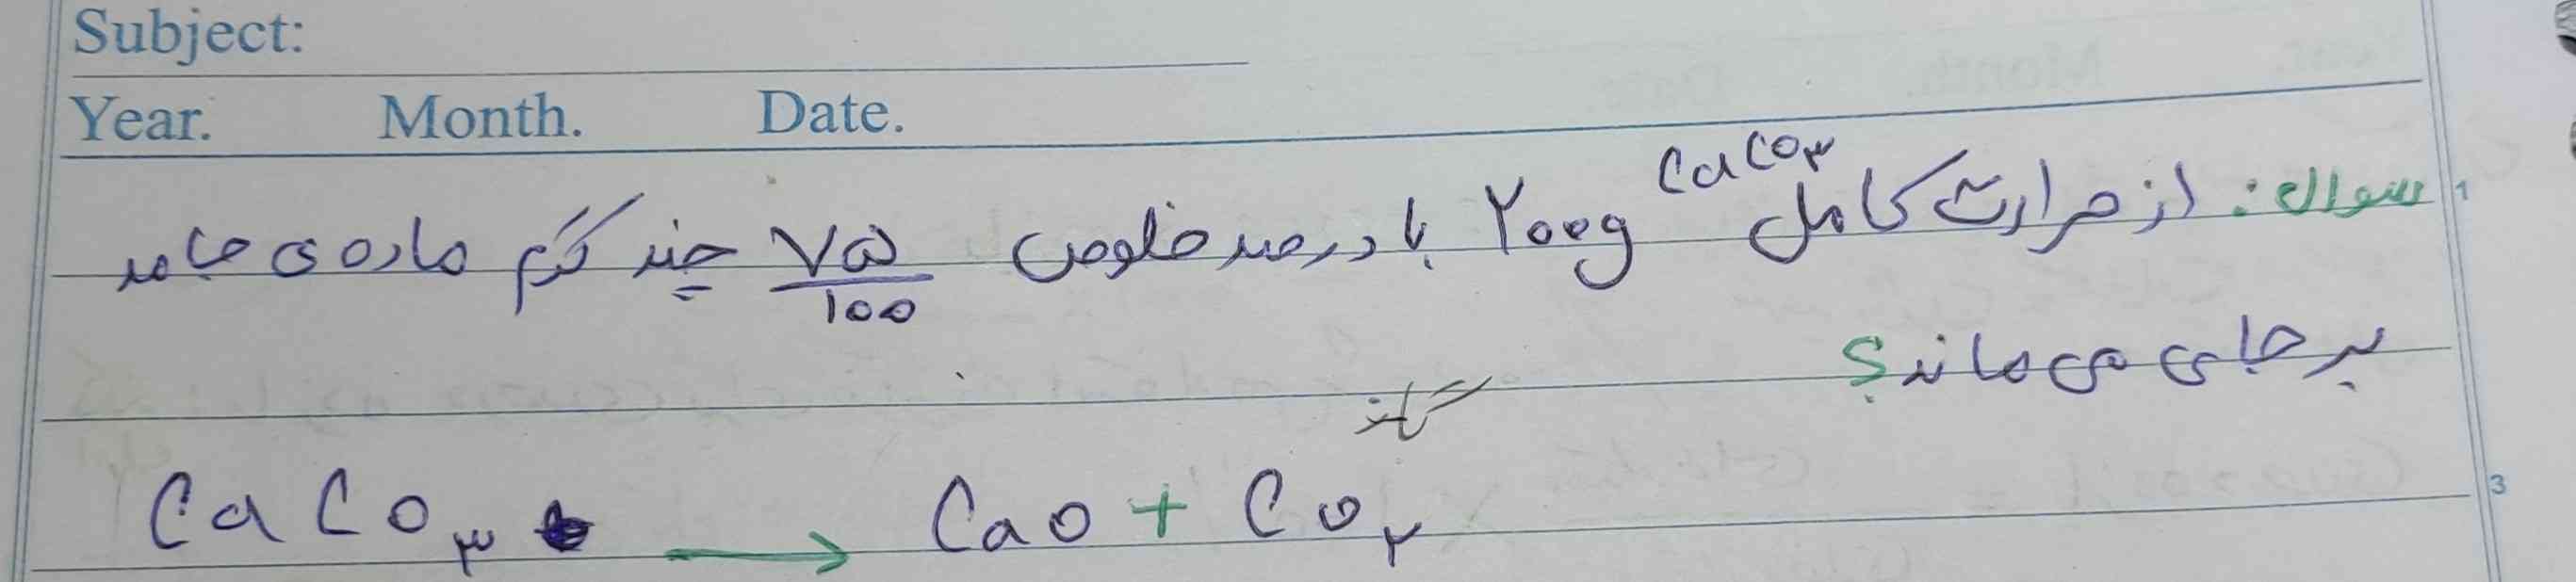 Subject:
Year. Month. Date.
سوال: از حرارت کامل CaCO۳ ۲۰۰g با درصد خلوص ۷۵/۱۰۰ چند گرم ماده ی جامد
بر جای می ماند؟
گاز
CaCO۳ → CaO + CO۲
1
3